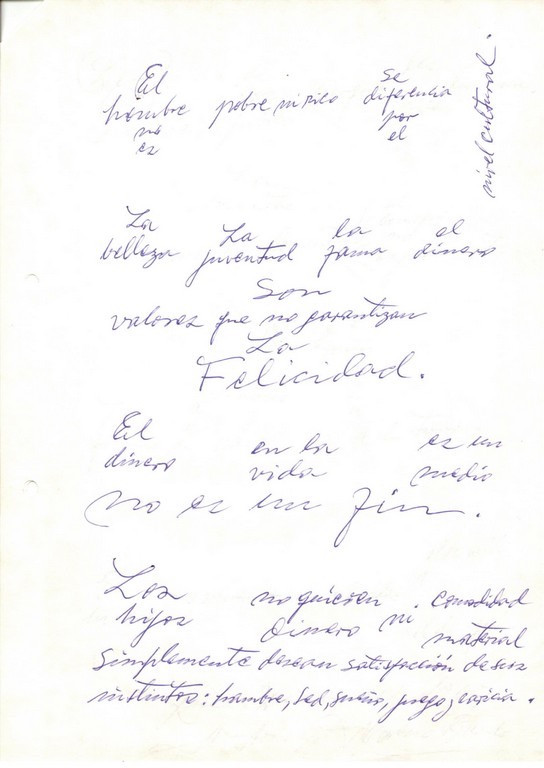 El
hombre
no
es
pobre ni rico
se
diferencia
por
el
nivel cultural.
La
belleza
La
juventud
la
fama
el
dinero
Son
valores que no garantizan
La
Felicidad.
El
dinero
en la
vida
es un
medio
no es un fin.
Los
hijos
no quieren
dinero ni
comodidad
material
simplemente desean satisfacción de sus
instintos: hambre, sed, sueño, juego, caricia.